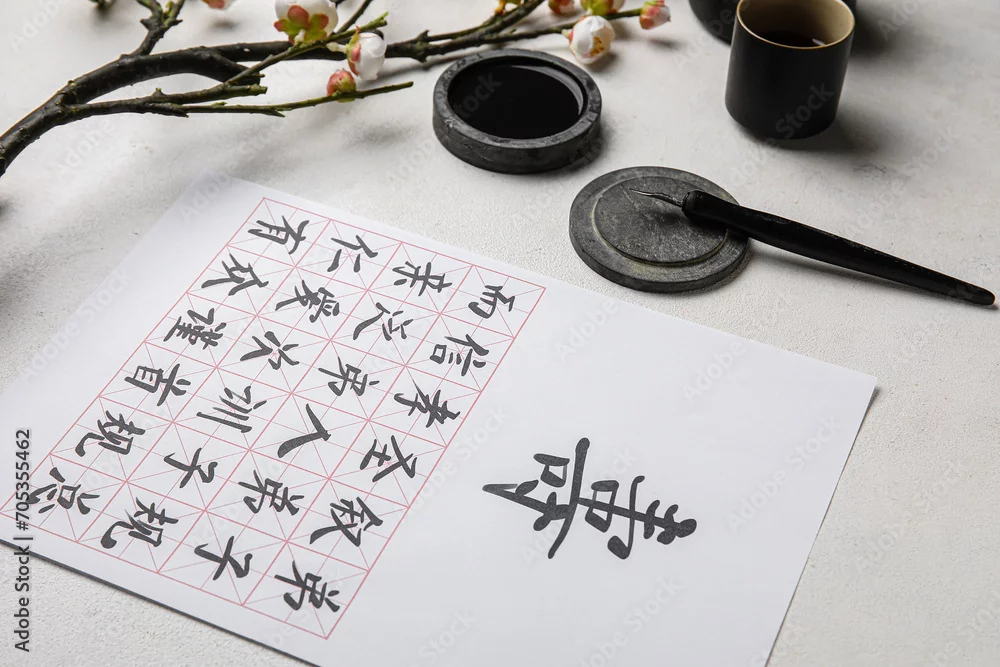 弟子规总
叙弟子规
圣人训首
孝弟次谨
信泛爱众
而亲仁有
壽
Adobe Stock | #705355462